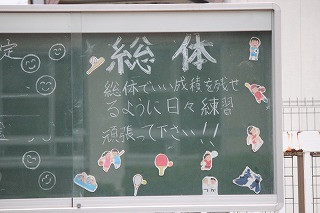 定
総体
総体でいい成績を残せ
るように日々練習
頑張って下さい!!